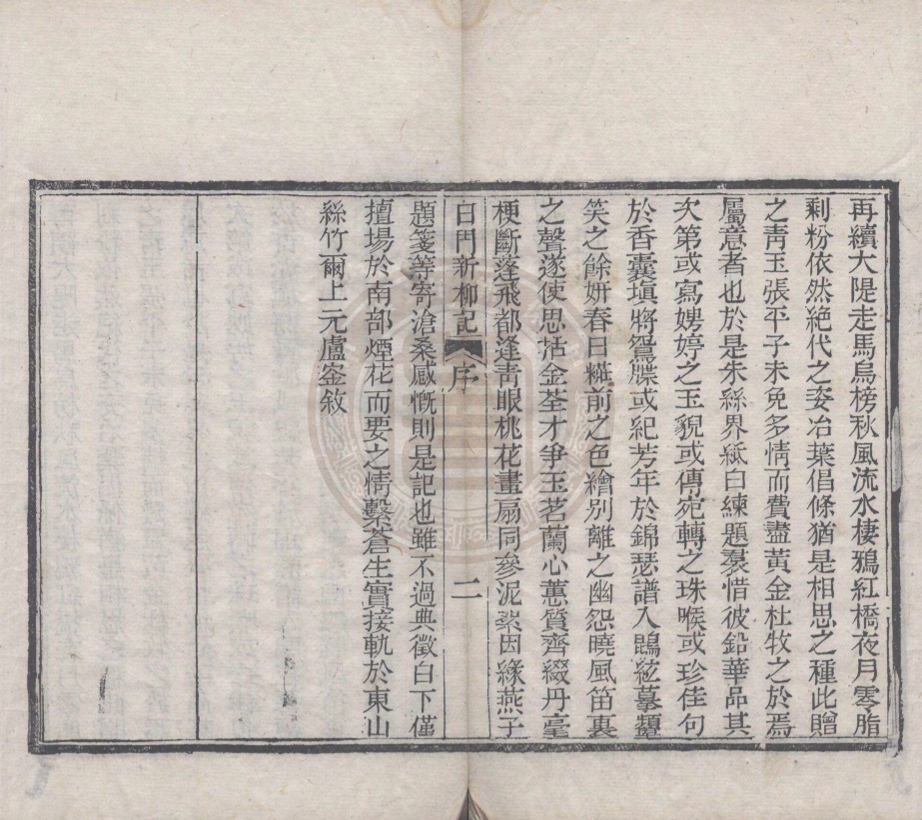 再續大隄走馬烏榜秋風流水棲鴉紅橋夜月零脂
剩粉依然絶代之姿冶葉倡條猶是相思之種此贈
之靑玉張平子未免多情而費盡黃金杜牧之於焉
屬意者也於是朱絲界紙白練題裠惜彼鉛華品其
次第或寫娉婷之玉貌或傳宛轉之珠喉或珍佳句
於香囊塡將鴛牒或紀芳年於錦瑟譜入鵾絃摹顰
笑之餘妍春日糚前之色繪別離之幽怨曉風笛裏
之聲遂使思括金荃才爭玉茗蘭心蕙質齊綴丹毫
梗斷蓬飛都逢靑眼桃花畫扇同參泥絮因緣燕子
白門新柳記 序 二
題箋等寄滄桑感慨則是記也雖不過典徵白下僅
擅場於南部煙花而要之情繫蒼生實接軌於東山
絲竹爾上元盧崟敘